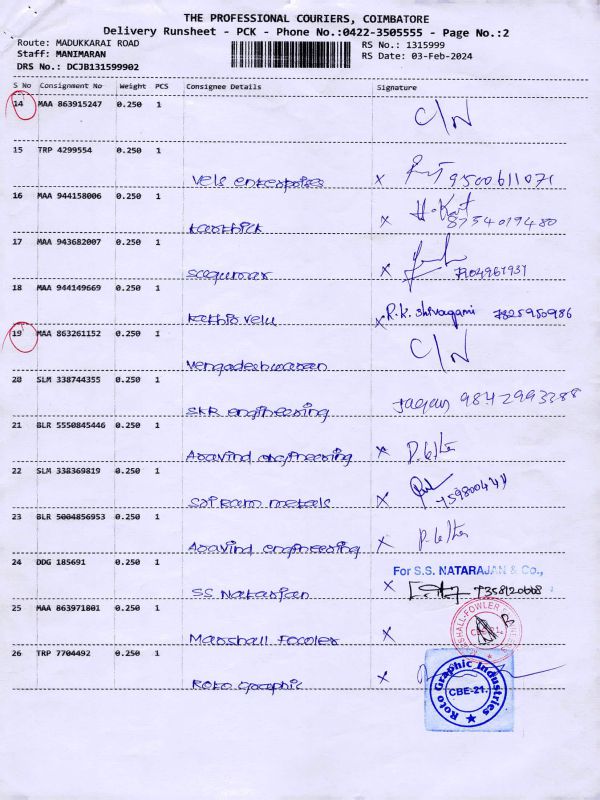 THE PROFESSIONAL COURIERS, COIMBATORE
Delivery Runsheet - PCK - Phone No.:0422-3505555 - Page No.:2
Route: MADUKKARAI ROAD
RS No.: 1315999
Staff: MANIMARAN
RS Date: 03-Feb-2024
DRS No.: DCJB131599902
S No Consignment No Weight PCS Consignee Details Signature
14 MAA 863915247 0.250 1
C/N
15 TRP 4299554 0.250 1
Vels enterprises x 9500611071
16 MAA 944158006 0.250 1
karthick x 8754019480
17 MAA 943682007 0.250 1
x
18 MAA 944149669 0.250 1
x R.k. shivagami 7825950986
19 MAA 863261152 0.250 1
C/N
Vengadeshwaran
20 SLM 338744355 0.250 1
SKR engineering Jagan
21 BLR 5550845446 0.250 1
Aravind engineering x
22 SLM 338369819 0.250 1
Sri Ram metals x
23 BLR 5004856953 0.250 1
Aravind engineering x
24 DDG 185691 0.250 1
For S.S. NATARAJAN & Co.,
SS Natarjan x 7358120668
25 MAA 863971801 0.250 1
Marshall Fowler x
CBE-21.
26 TRP 7704492 0.250 1
Roto Graphic x
Roto Graphic Industries
CBE-21.